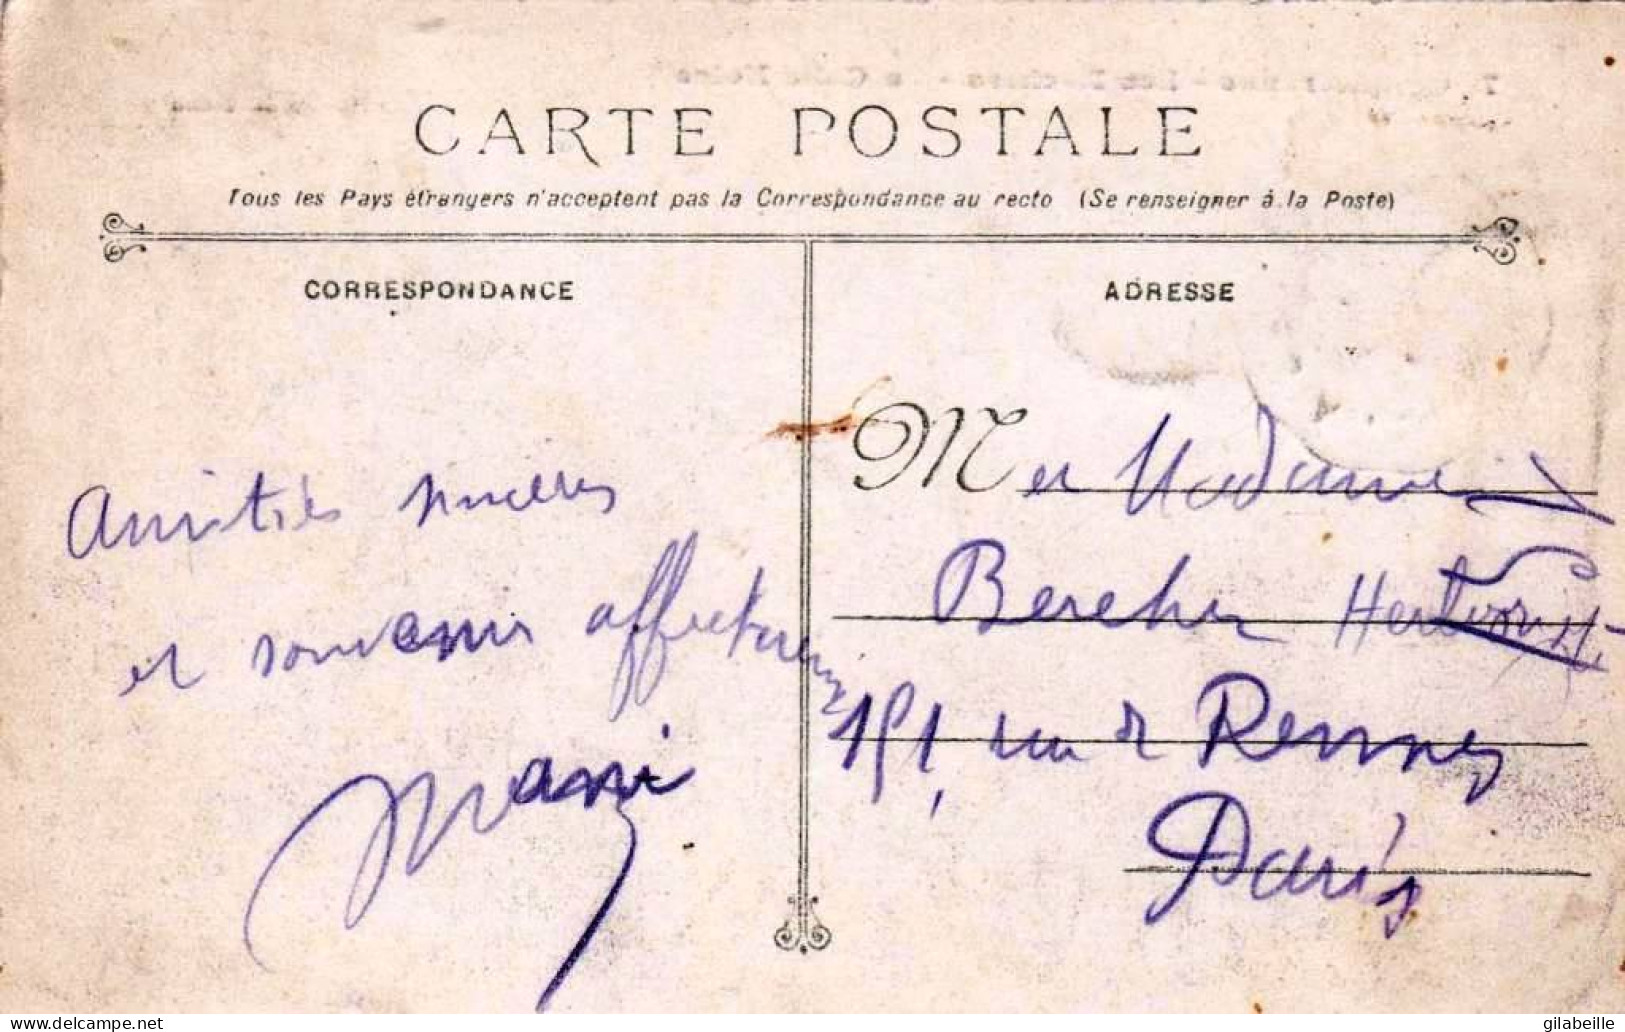 CARTE POSTALE
Tous les Pays étrangers n'acceptent pas la Correspondance au recto (Se renseigner à la Poste)
CORRESPONDANCE
Amitiés sincères
et souvenir affectueux
ADRESSE
M et Madame
Bercher
151, rue de Rennes
Paris
delcampe.net
gilabeille